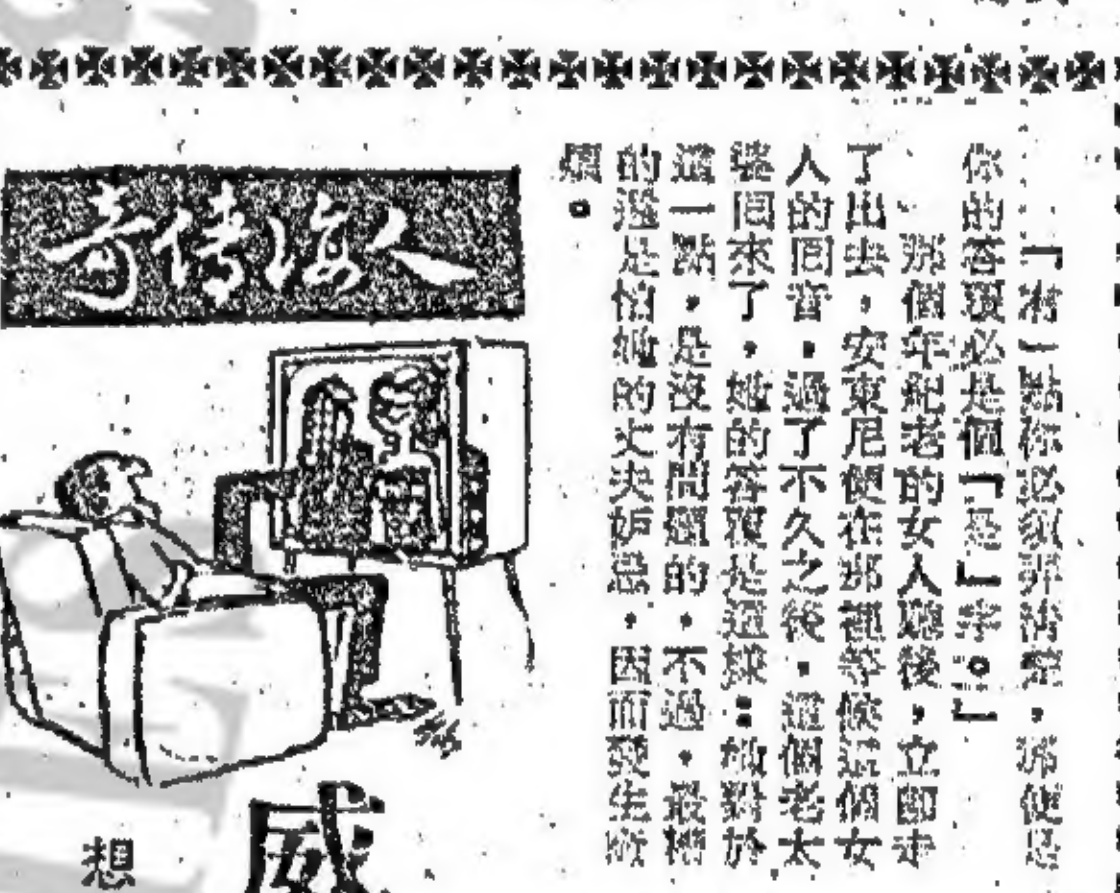 「有一點你必須弄清楚，那便是
你的答覆必是個『是』字。」
那個年紀老的女人聽後，立即走
了出去，安東尼便在那裡等候這個女
人的回音，過了不久之後，這個老太
婆回來了，她的答覆是這樣：她對於
這一點，是沒有問題的，不過，最
的還是怕她的丈夫妒忌，因而發生麻
煩。
人海傳奇
威
想